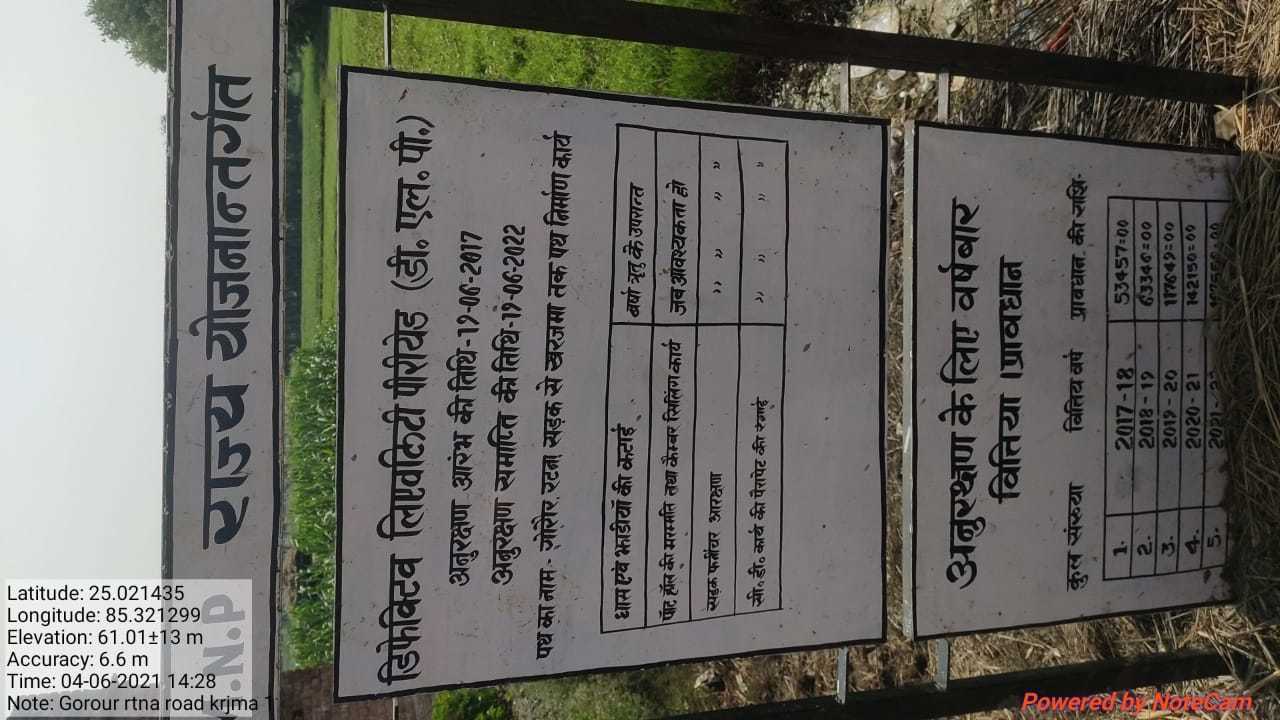 राज्य योजनान्तर्गत
.N.P
डिफेक्टिव लिएवलिटी पीरीयेड (डी. एल. पी.)
अनुरक्षण आरंभ की तिथि-19-06-2017
अनुरक्षण समाप्ति की तिथि-19-06-2022
पथ का नाम- गोरौर रटना सड़क से खरजमा तक पथ निर्माण कार्य
घास एवं झाडीयाँ की कटाई वर्षा ऋतु के उपरान्त
पॉट हॉल की मरम्मति तथा कैम्बर सिलिंग कार्य जब आवश्यकता हो
सड़क फर्नीचर आरक्षण " " " "
सी. डी. कार्य की पैरापेट की रंगाई " " " "
अनुरक्षण के लिए वर्षबार
वित्तिय प्रावधान
कुल संख्या वित्तिय वर्ष प्रावधान की राशि-
1. 2017-18 53457=00
2. 2018-19 63346=00
3. 2019-20 117649=00
4. 2020-21 142150=00
5.
Latitude: 25.021435
Longitude: 85.321299
Elevation: 61.01±13 m
Accuracy: 6.6 m
Time: 04-06-2021 14:28
Note: Gorour rtna road krjma 1
Powered by NoteCam